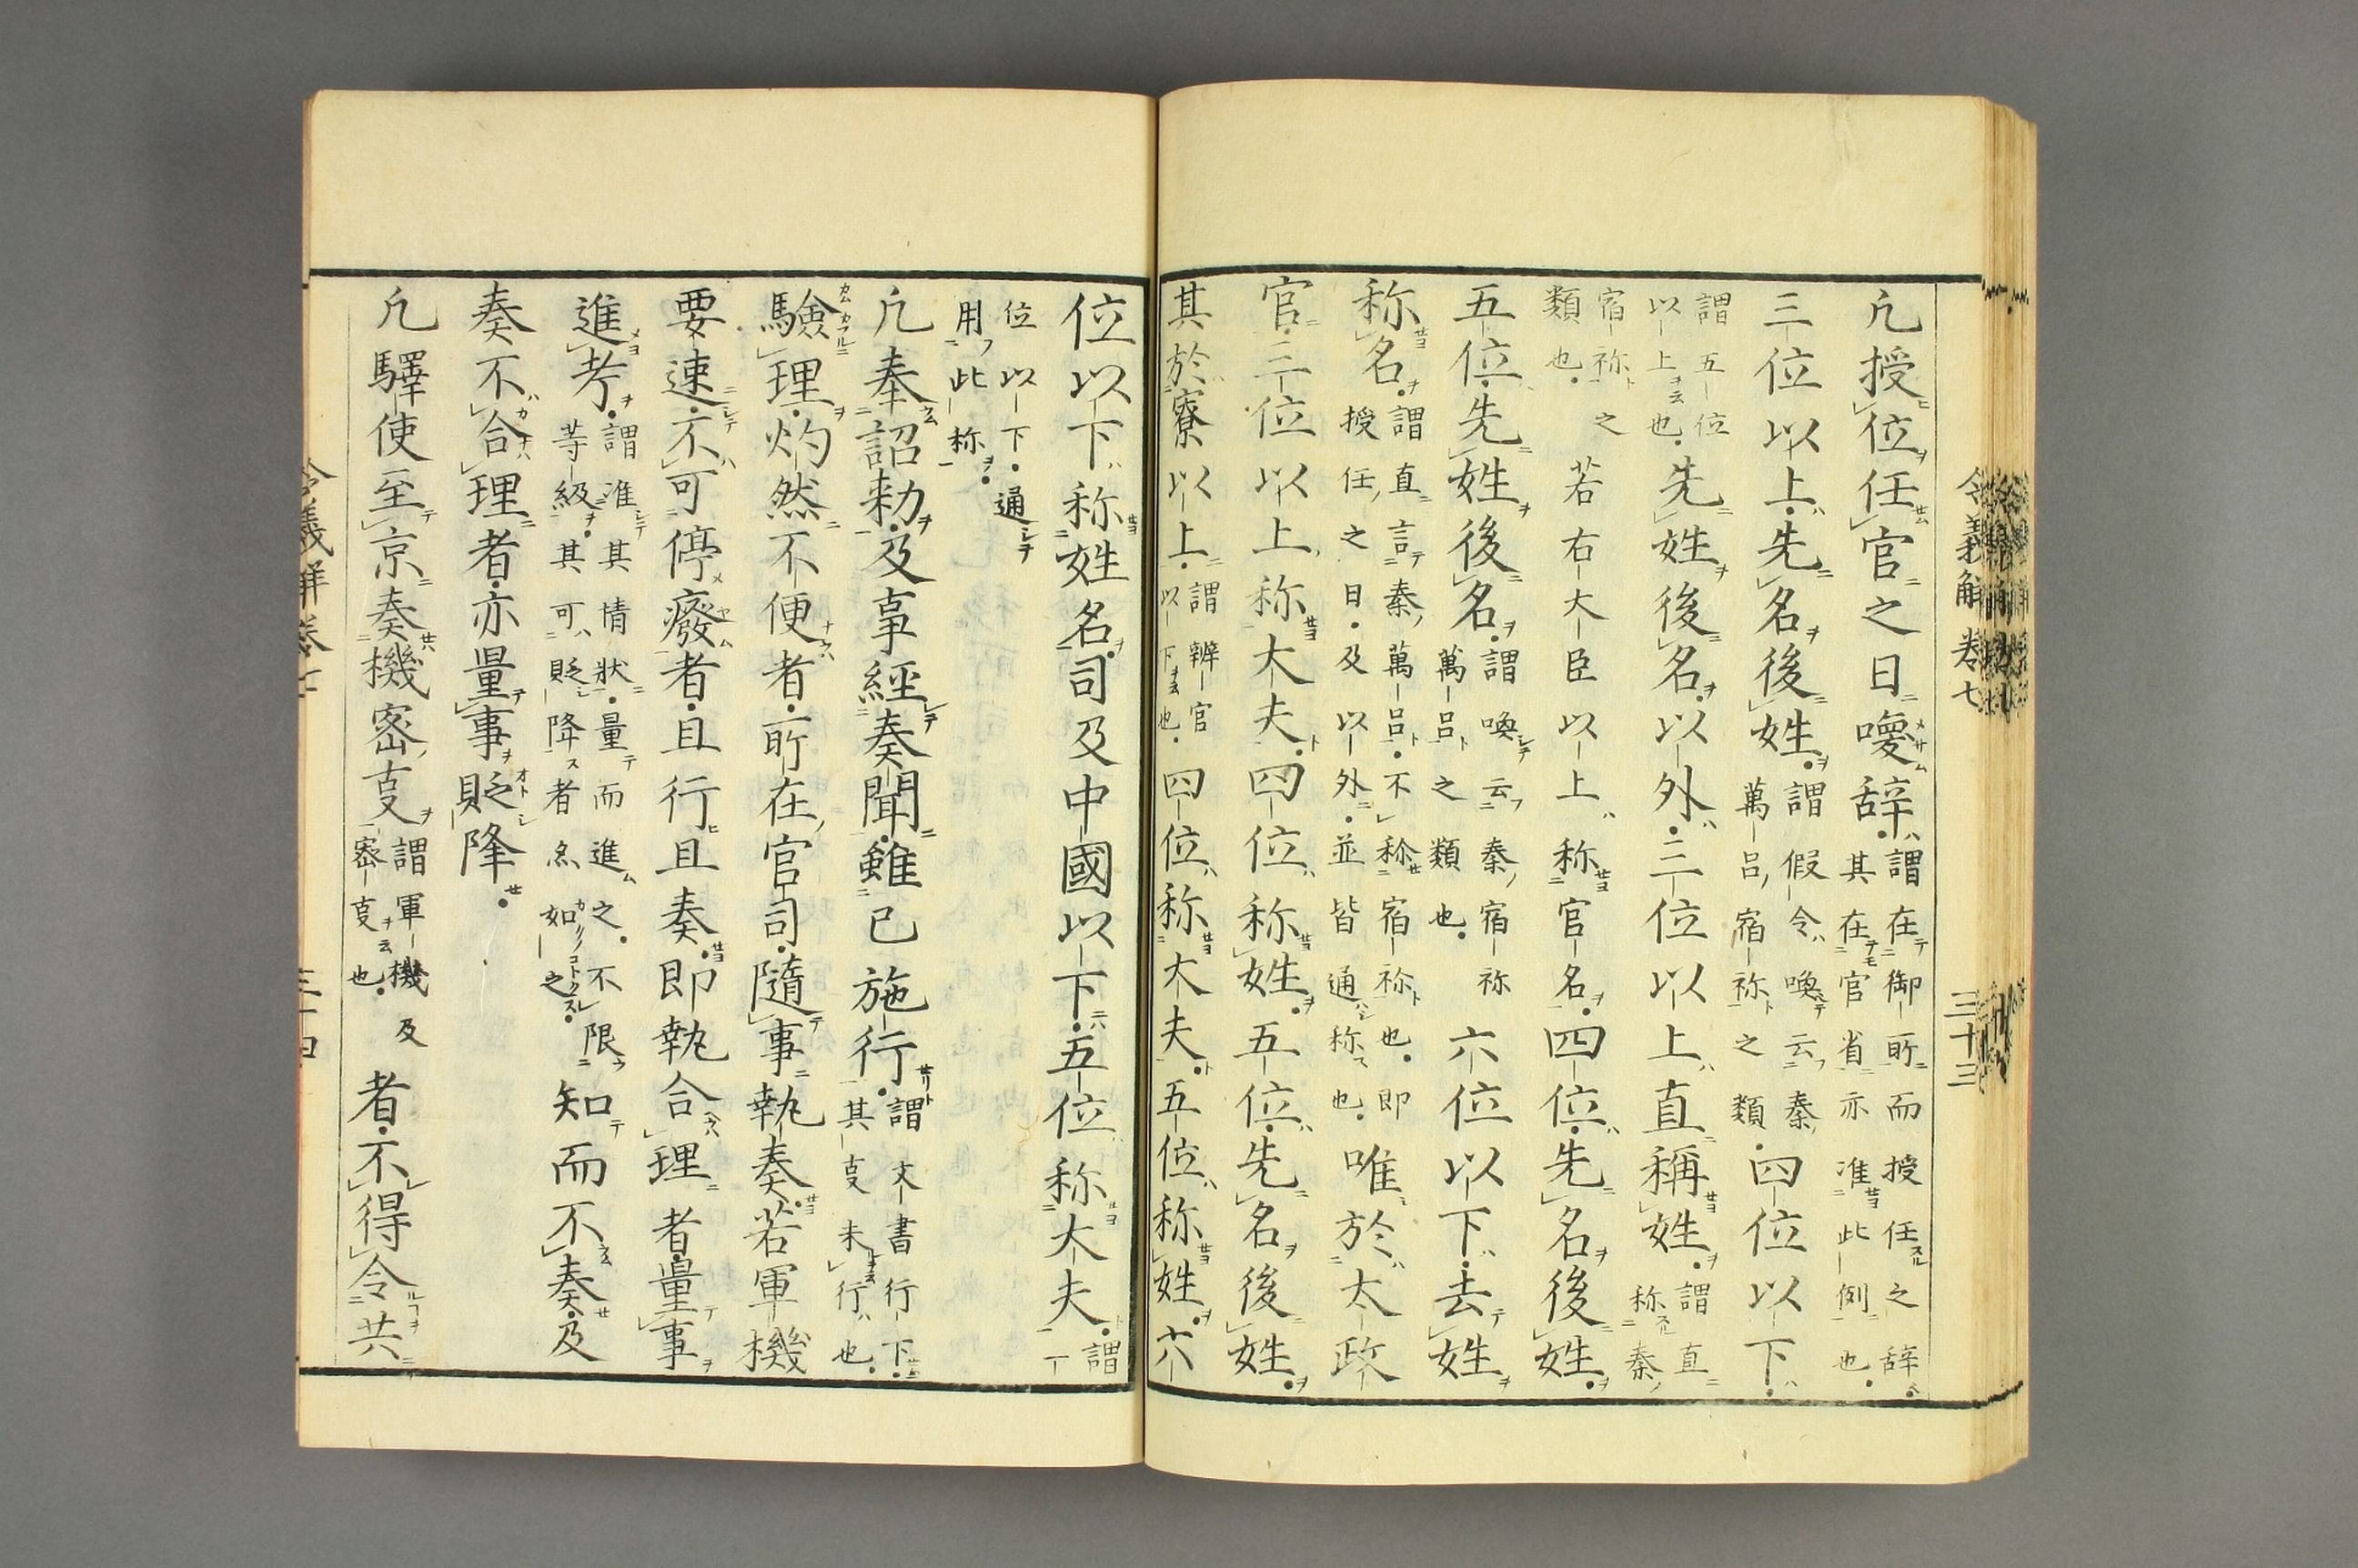 凢授位任官之日喚辞謂在御所而授任之辞
其在官省亦准此例也
三位以上先名後姓謂假令喚云秦
萬呂宿祢之類四位以下
謂五位
以上也先姓後名以外三位以上直稱姓謂直
称秦
宿祢之
類也若右大臣以上称官名四位先名後姓
五位先姓後名謂喚云秦宿祢
萬呂之類也六位以下去姓
称名謂直言秦萬呂不称宿祢也即
授任之日及以外並皆通称也唯於太政
官三位以上称大夫四位称姓五位先名後姓
其於寮以上謂辨官
以下也四位称大夫五位称姓六
位以下称姓名司及中國以下五位称大夫謂一
位以下通
用此称
凢奉詔勅及事經奏聞雖已施行謂文書行下
其㕝未行也
驗理灼然不便者所在官司隨事執奏若軍機
要速不可停廢者且行且奏即執合理者量事
進考謂准其情狀量而進之不限
等級其可貶降者亦如之知而不奏及
奏不合理者亦量事貶降
凢驛使至京奏機密㕝謂軍機及
密㕝也者不得令共
令義解卷七
三十三